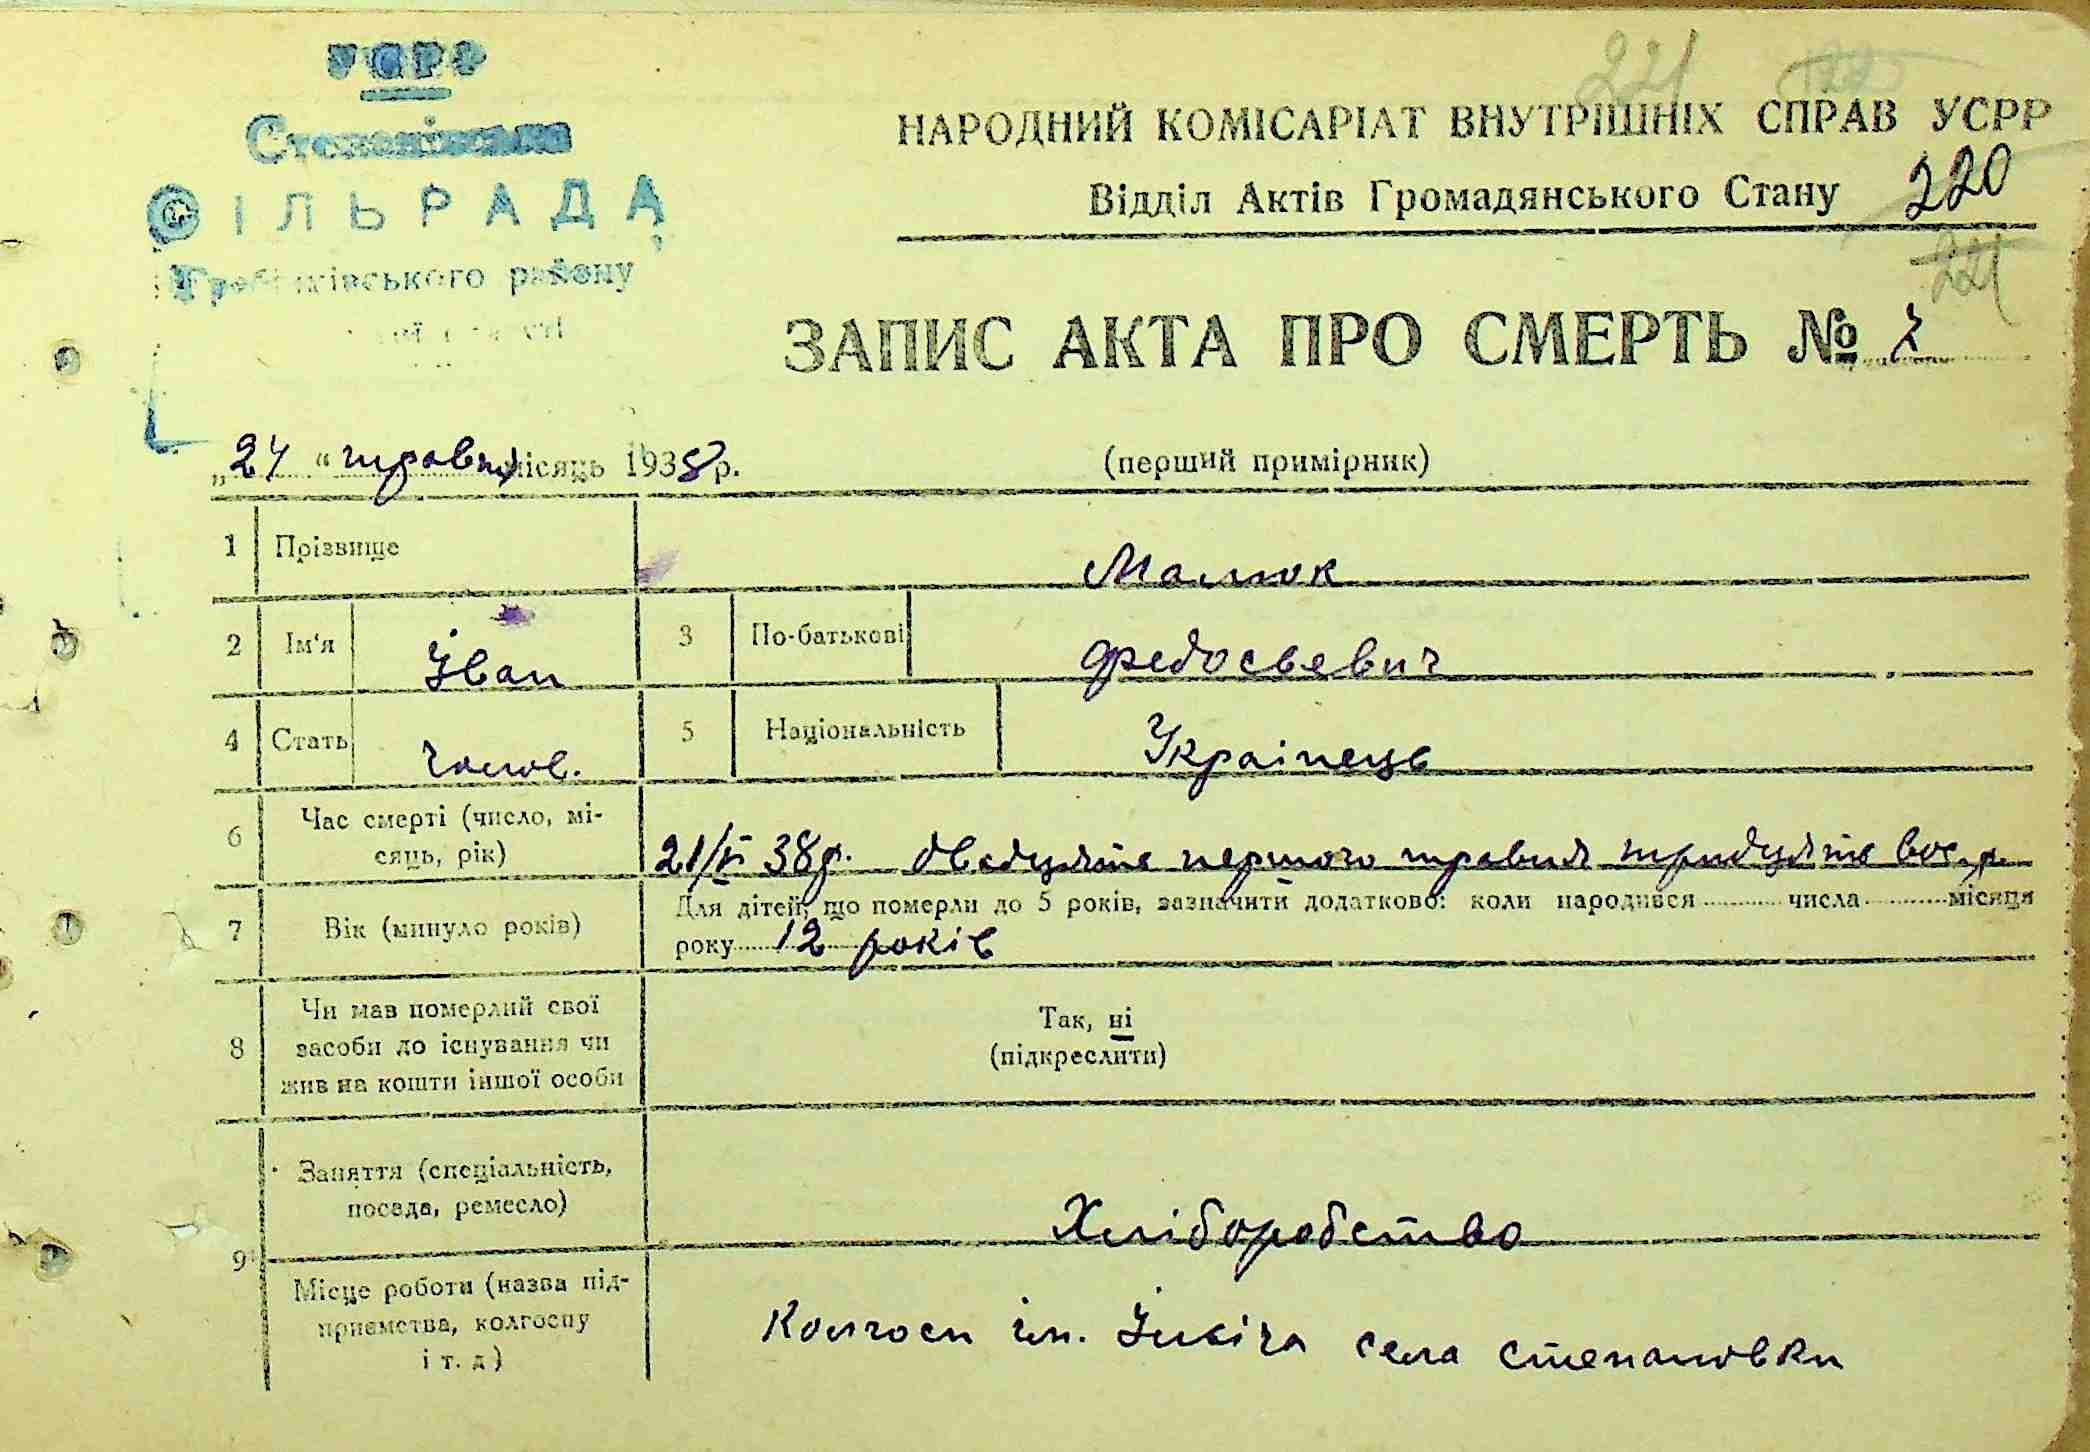 УСРР
Степанівська
СІЛЬРАДА
району
221
НАРОДНИЙ КОМІСАРІАТ ВНУТРІШНІХ СПРАВ УСРР
Відділ Актів Громадянського Стану 220
221
ЗАПИС АКТА ПРО СМЕРТЬ № 7
„24“ травня місяць 1938 р.
(перший примірник)
1 Прізвище Малюк
2 Ім'я Іван 3 По-батькові Федосьевич
4 Стать чолов. 5 Національність Українець
6 Час смерті (число, мі-
сяць, рік)
21/V 38р. двадцять першого травня тридцять вос. р.
7 Вік (минуло років)
Для дітей, що померли до 5 років, зазначити додатково: коли народився числа місяця
року 12 років
8 Чи мав померлий свої
засоби до існування чи
жив на кошти іншої особи
Так, ні
(підкреслити)
9 Заняття (спеціальність,
посада, ремесло)
Хліборобство
Місце роботи (назва під-
приємства, колгоспу
і т. д)
Колгосп ім. Ілліча села Степановки